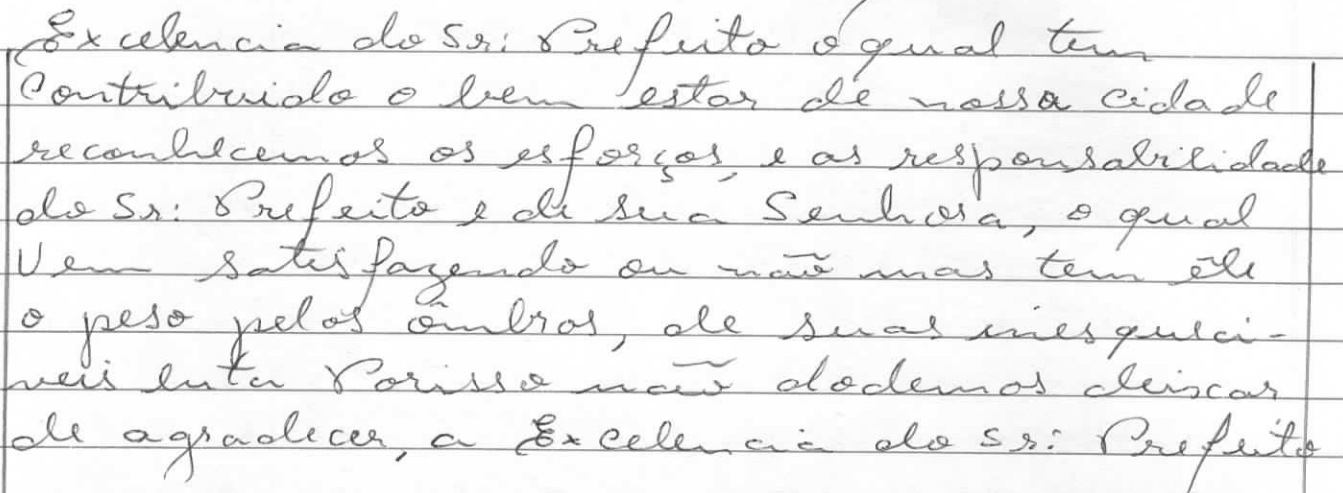 Excelencia do Sr: Prefeito o qual tem
Contribuido o bem estar de nossa cidade
reconhecemos os esforços, e as responsabilidade
do Sr: Prefeito e de sua Senhora, o qual
Vem satisfazendo ou não mas tem êle
o peso pelos ômbros, de suas inesqueci-
veis luta Porisso não dodemos deixar
de agradecer, a Excelencia do Sr: Prefeito